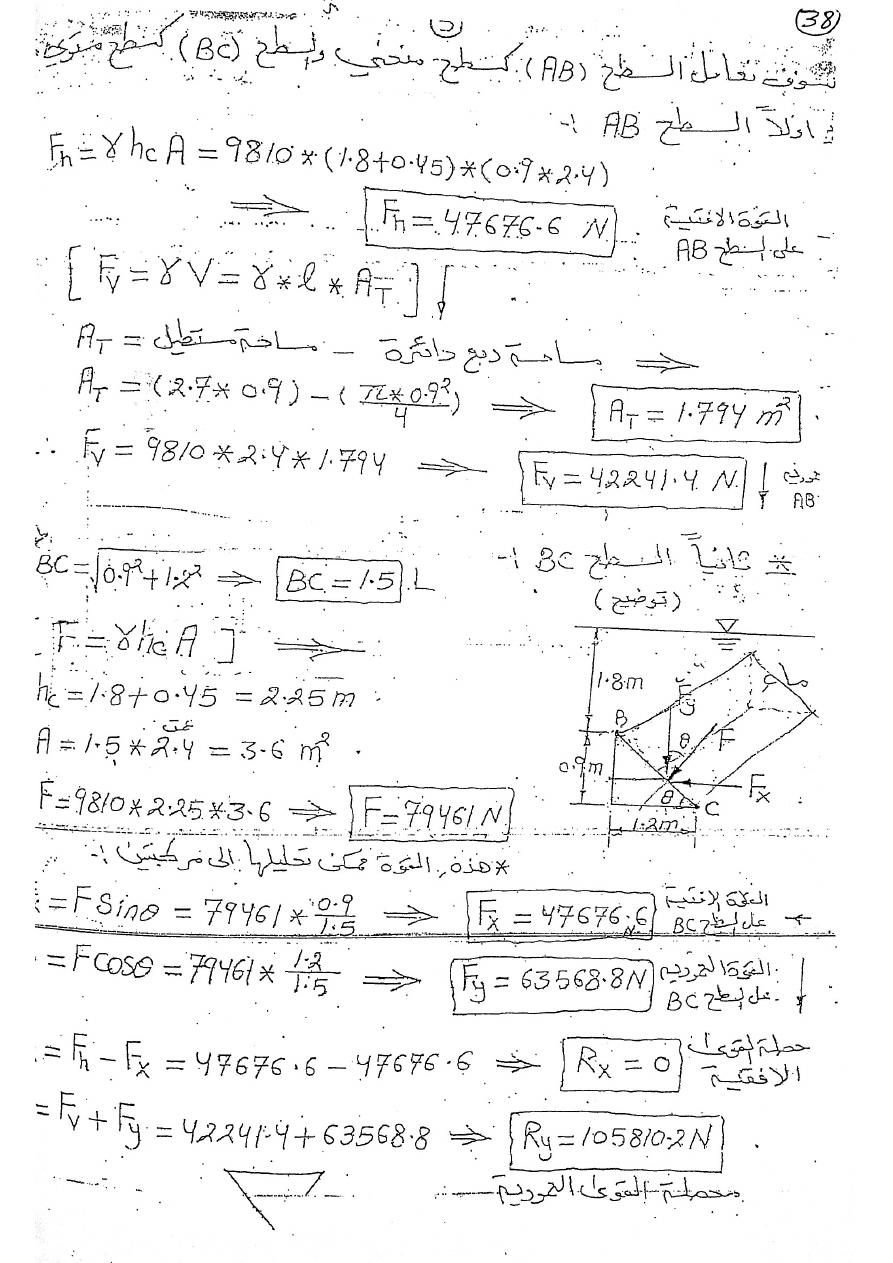 (38)
سوف نعامل السطح (AB) كسطح منحني والسطح (BC) كسطح مستوي
اولاً السطح AB :-
Fh = γ hc A = 9810 * (1.8+0.45) * (0.9*2.4)
⇒ Fh = 47676.6 N القوة الافقية على السطح AB
[ Fv = γ V = γ * l * AT ] ↓
AT = مساحة مستطيل - مساحة ربع دائرة ⇒
AT = (2.7*0.9) - (π*0.9²/4) ⇒ AT = 1.794 m²
∴ Fv = 9810 * 2.4 * 1.794 ⇒ Fv = 42241.4 N ↓ AB
* ثانياً السطح BC :-
BC = √0.9²+1.2² ⇒ BC = 1.5
(توضيح)
F = γ hc A ] ⇒
hc = 1.8+0.45 = 2.25 m
A = 1.5 * 2.4 = 3.6 m²
F = 9810*2.25*3.6 ⇒ F = 79461 N
1.8m
ماء
B
Fy
θ
F
0.9m
Fx
θ
C
1.2m
* هذه القوة ممكن تحليلها الى مركبتين :-
= F Sinθ = 79461 * 0.9/1.5 ⇒ Fx = 47676.6 N القوة الافقية على السطح BC ←
= F cosθ = 79461 * 1.2/1.5 ⇒ Fy = 63568.8 N القوة العمودية على السطح BC ↓
= Fh - Fx = 47676.6 - 47676.6 ⇒ Rx = 0 محصلة القوى الافقية
= Fv + Fy = 42241.4 + 63568.8 ⇒ Ry = 105810.2 N
محصلة القوى العمودية